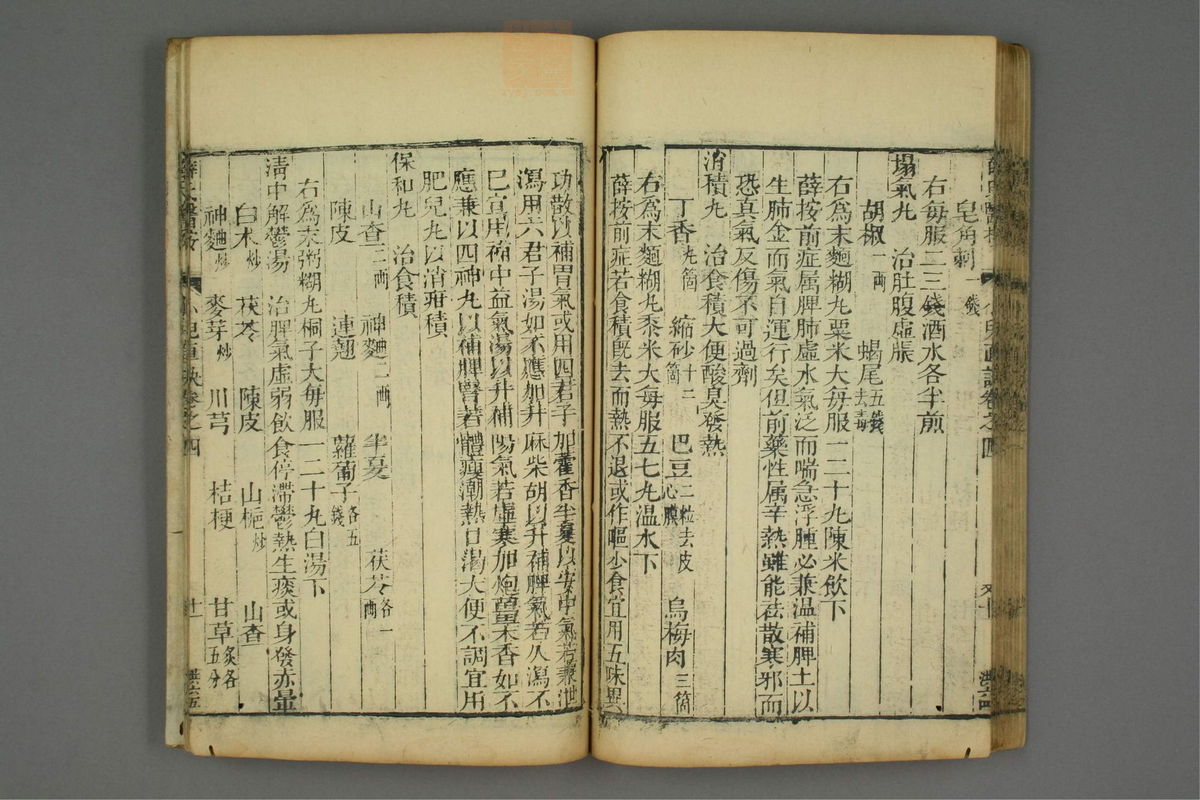 皂角刺一錢
右每服二三錢酒水各半煎
塌氣丸　治肚腹虛脹
胡椒一兩　蝎尾五錢去毒
右爲末麵糊丸粟米大每服一二十丸陳米飲下
薛按前症属脾肺虛水氣泛而喘急浮腫必兼温補脾土以
生肺金而氣自運行矣但前藥性属辛熱雖能祛散寒邪而
恐真氣反傷不可過劑
消積丸　治食積大便酸臭發熱
丁香九箇　縮砂十二箇　巴豆二粒去皮心膜　烏梅肉三箇
右爲末麵糊丸黍米大每服五七丸温水下
薛按前症若食積既去而熱不退或作嘔少食宜用五味異
功散以補胃氣或用四君子加藿香半夏以安中氣若兼泄
瀉用六君子湯如不應加升麻柴胡以升補脾氣若久瀉不
已宜用補中益氣湯以升補陽氣若虛寒加炮薑木香如不
應兼以四神丸以補脾腎若體瘦潮熱口渴大便不調宜用
肥兒丸以消疳積
保和丸　治食積
山查二兩　神麯二兩　半夏　茯苓各一兩
陳皮　連翹　蘿蔔子各五錢
右爲末粥糊丸桐子大每服一二十丸白湯下
清中解鬱湯　治脾氣虛弱飲食停滯鬱熱生痰或身發赤暈
白术炒　茯苓　陳皮　山梔炒　山查
神麯炒　麥芽炒　川芎　桔梗　甘草炙各五分
薛氏醫按　小兒直訣卷之四　十一